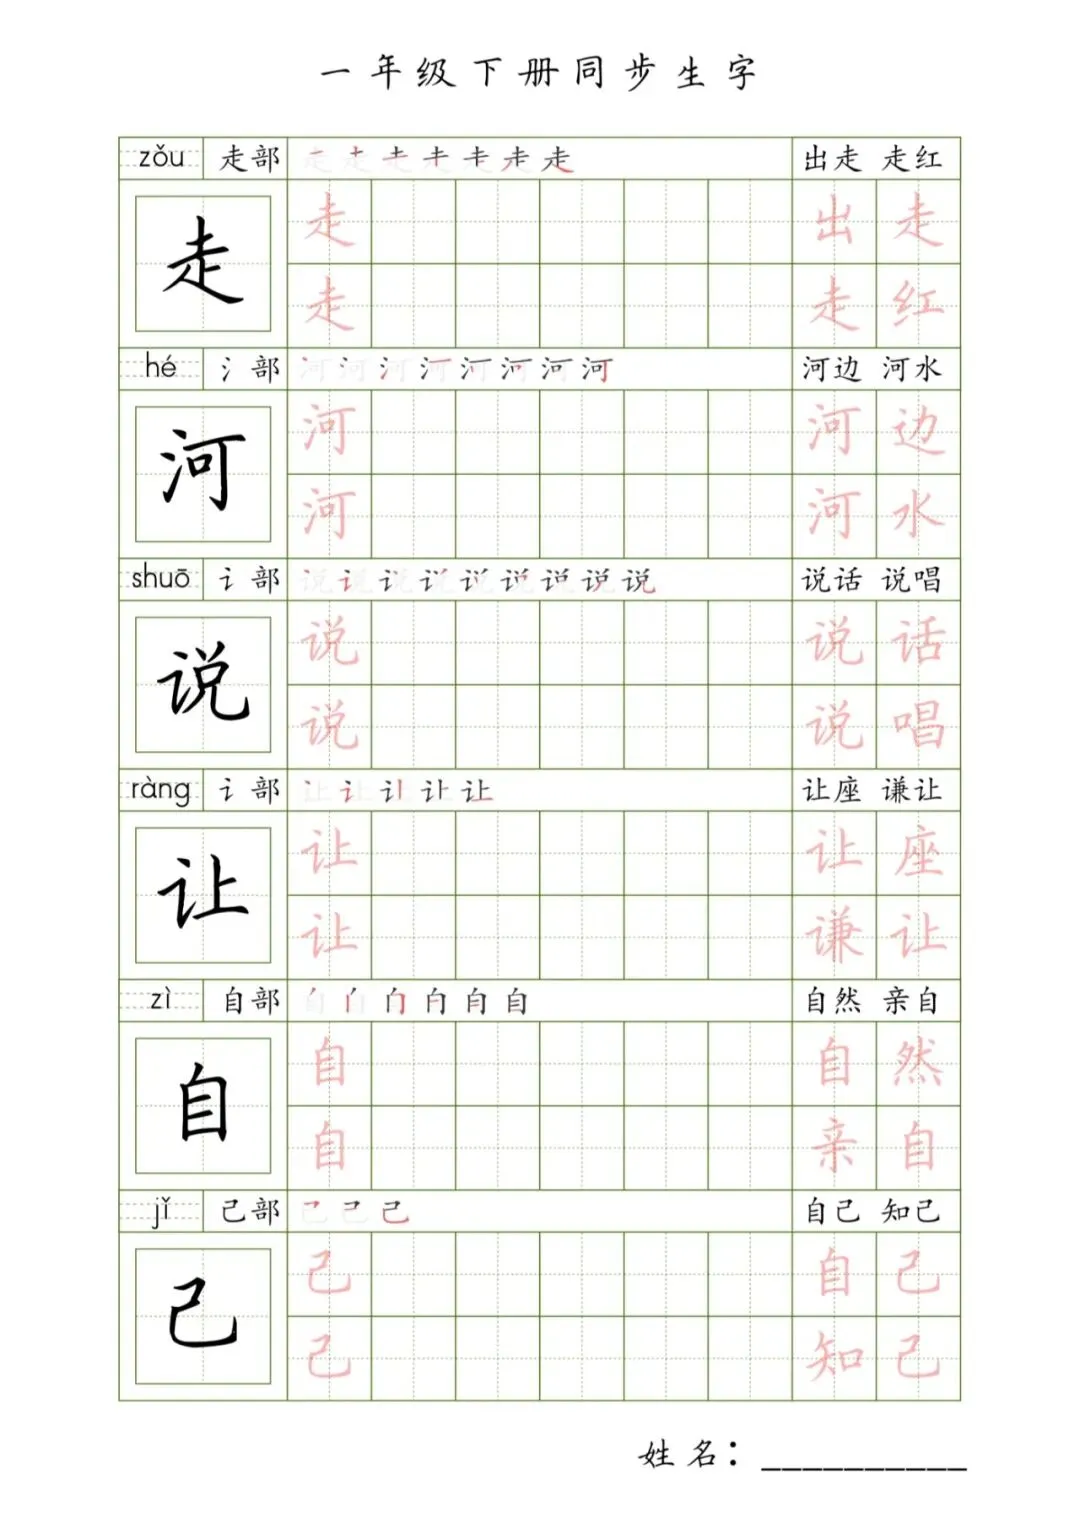 一年级下册同步生字
zǒu 走部 走走走走走走走 出走 走红
走 走 出走
走 走红
hé 氵部 河河河河河河河河 河边 河水
河 河 河边
河 河水
shuō 讠部 说说说说说说说说说 说话 说唱
说 说 说话
说 说唱
ràng 讠部 让让让让让 让座 谦让
让 让 让座
让 谦让
zì 自部 自自自自自自 自然 亲自
自 自 自然
自 亲自
jǐ 己部 己己己 自己 知己
己 己 自己
己 知己
姓名：__________